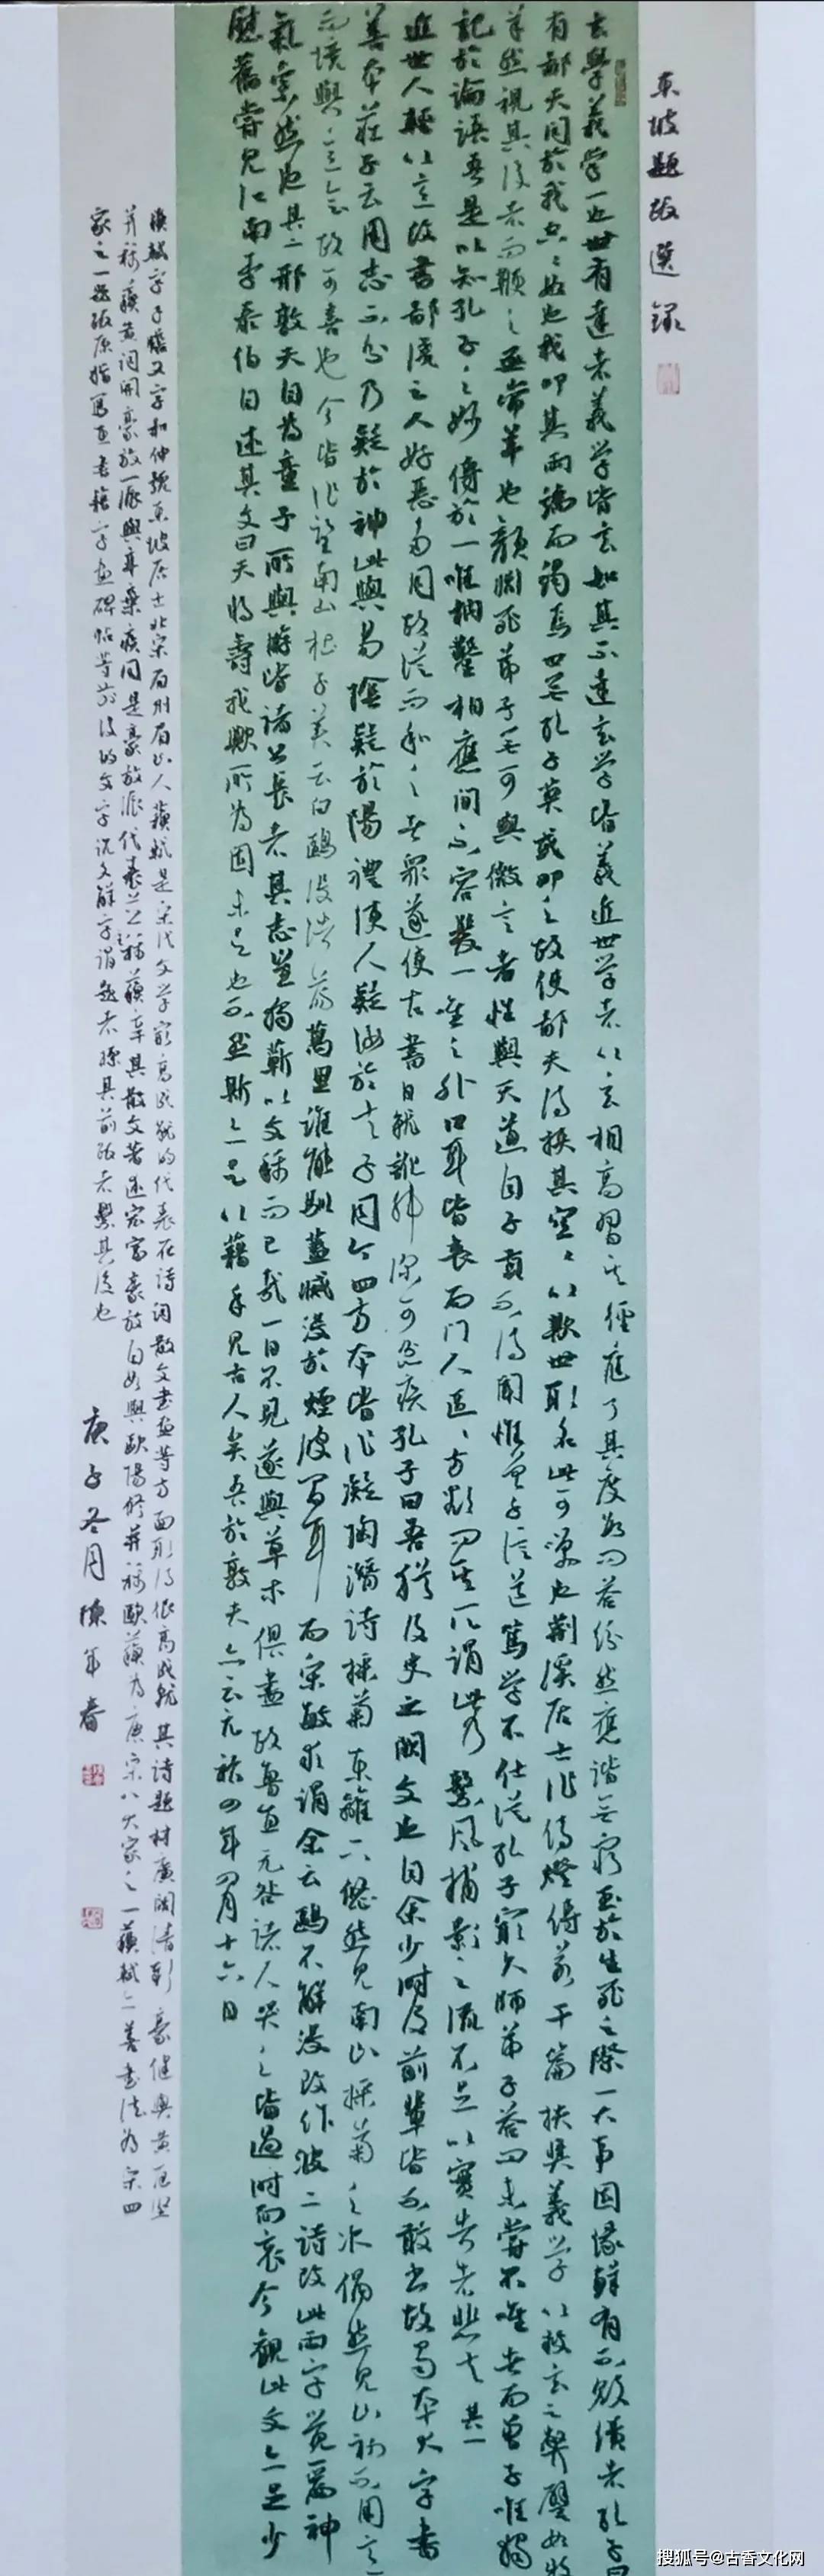 東坡題跋選錄
玄學義學一也世有達者義學皆玄如其不達玄學皆義近世學者以玄相高習其徑庭了其度數問答紛然應諾無窮至於生死之際一大事因緣鮮有不敗績者孔子曰
有鄙夫問於我空空如也我叩其兩端而竭焉世無孔子莫或叩之故使鄙夫得挾其空空以欺世取名此可笑也荊溪居士作傳燈傳若干篇扶奬義學以救玄之弊譬如牧
羊然視其後者而鞭之無常羊也顏淵死弟子無可與微言者性與天道自子貢不得聞惟曾子信道篤學不仕從孔子最久師弟子答問未嘗不唯者而曾子唯獨
記於論語吾是以知孔子之妙傳於一唯枘鑿相應間不容髮一唯之外口耳皆喪而門人區區方欲問其所謂此乃繫風捕影之流不足以實告者悲夫其一
近世人輕以意改書鄙淺之人好惡多同故從而和之者眾遂使古書日就訛舛深可忿疾孔子曰吾猶及史之闕文也自余少時見前輩皆不敢改書故蜀本大字書
善本莊子云用志不分乃疑於神此與易陰疑於陽禮使人疑汝於夫子同今四方本皆作凝陶潛詩採菊東籬下悠然見南山採菊之次偶然見山初不用意
而境與意會故可喜也今皆作望南山杜子美云白鷗沒浩蕩萬里誰能馴蓋滅沒於煙波間耳而宋敏求謂余云鷗不解沒改作波二詩改此兩字覺一篇神
氣索然也其二邢敦夫自為童子所與游皆諸公長者其志豈獨蘄以文稱而已哉一日不見遂與草木俱盡故魯直元咎諸人哭之皆過時而哀今觀此文亦足少
慰舊嘗見江南李泰伯自述其文曰天將壽我歟所為固未足也不然斯亦足以藉手見古人矣吾於敦夫亦云元祐四年四月十六日
蘇軾字子瞻又字和仲號東坡居士北宋眉州眉山人蘇軾是宋代文學最高成就的代表在詩詞散文書畫等方面取得很高成就其詩題材廣闊清新豪健與黃庭堅
並稱蘇黃詞開豪放一派與辛棄疾同是豪放派代表並稱蘇辛其散文著述宏富豪放自如與歐陽修並稱歐蘇為唐宋八大家之一蘇軾亦善書法為宋四
家之一題跋原指寫在書籍字畫碑帖等前後的文字說文解字謂題者標其前跋者繫其後也
庚子冬月陳年春
搜狐号@古香文化网